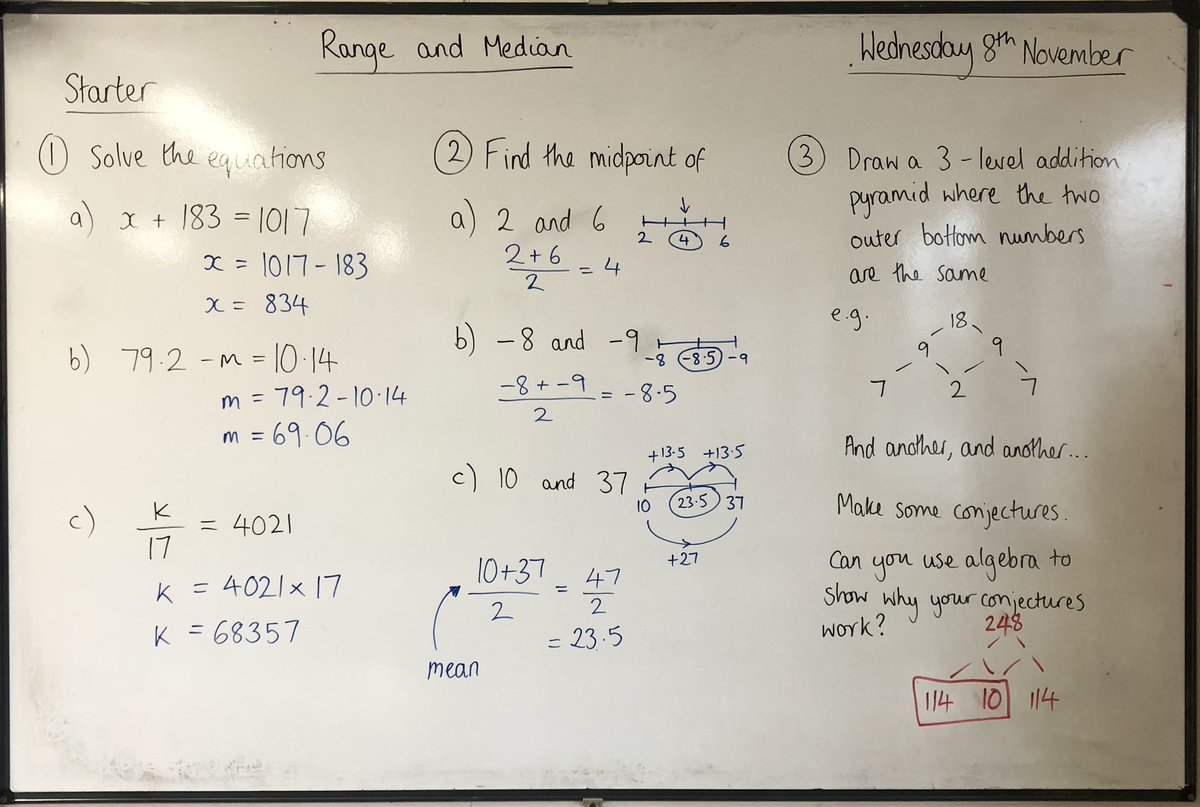 Range and Median
Wednesday 8th November
Starter
① Solve the equations
a) x + 183 = 1017
x = 1017 - 183
x = 834
b) 79.2 - m = 10.14
m = 79.2 - 10.14
m = 69.06
c) K/17 = 4021
K = 4021 x 17
K = 68357
② Find the midpoint of
a) 2 and 6
2 4 6
2+6/2 = 4
b) -8 and -9
-8 -8.5 -9
-8 + -9/2 = -8.5
c) 10 and 37
+13.5 +13.5
10 23.5 37
+27
10+37/2 = 47/2
= 23.5
mean
③ Draw a 3-level addition
pyramid where the two
outer bottom numbers
are the same
e.g.
18
9 9
7 2 7
And another, and another...
Make some conjectures.
Can you use algebra to
show why your conjectures
work?
248
114 10 114